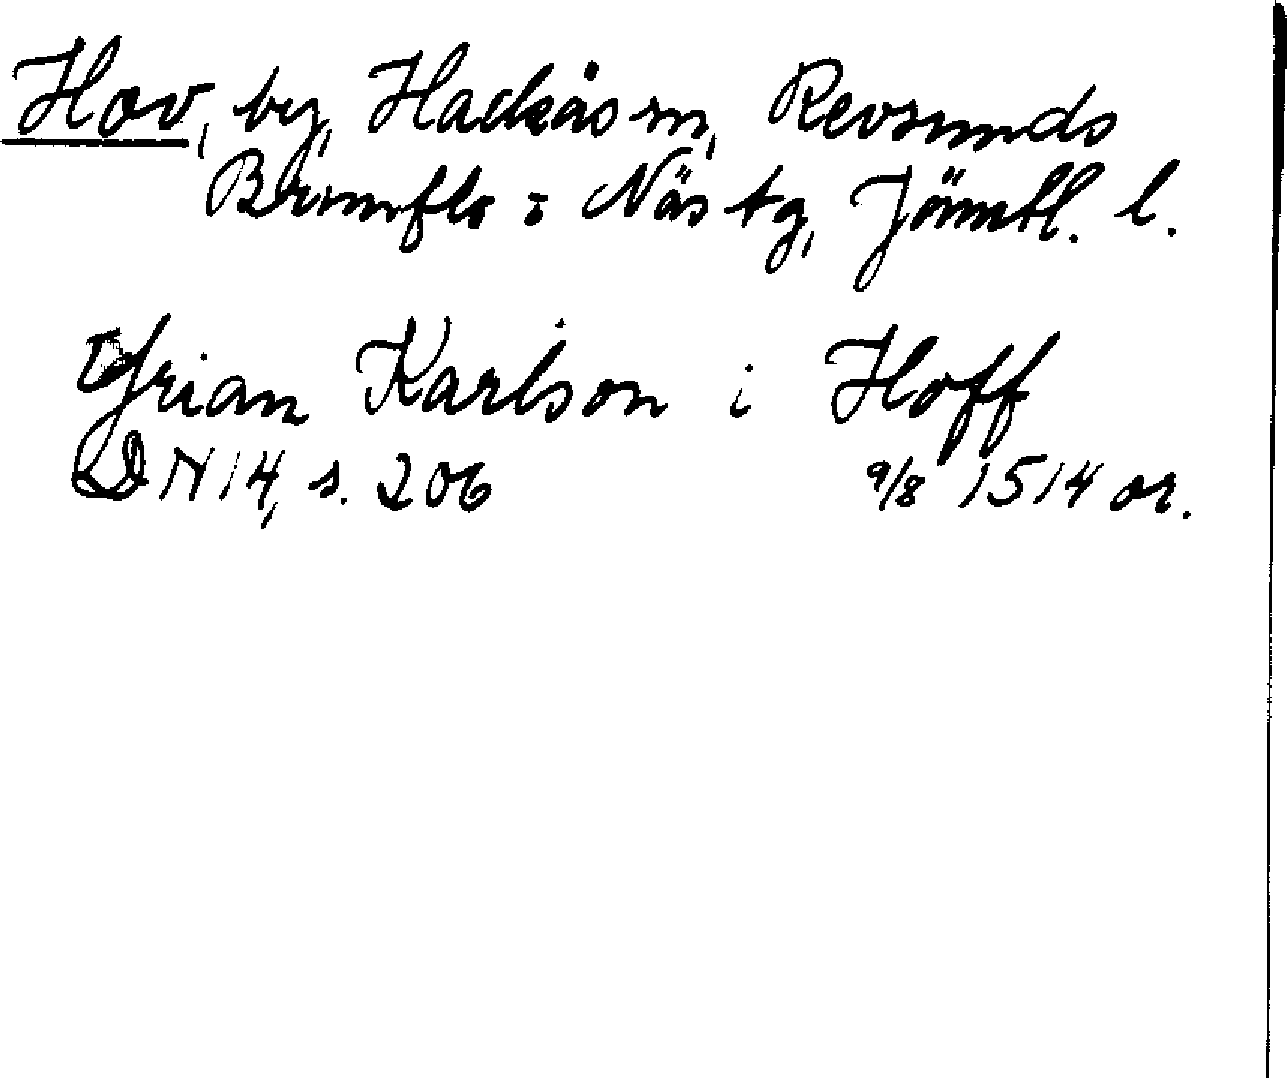 Hov, by, Hackås sn, Revsunds
Brunflo : Näs tg, Jämtl. l.
Ørian Karlson i Hoff
DN 14, s. 206 9/8 1514 or.